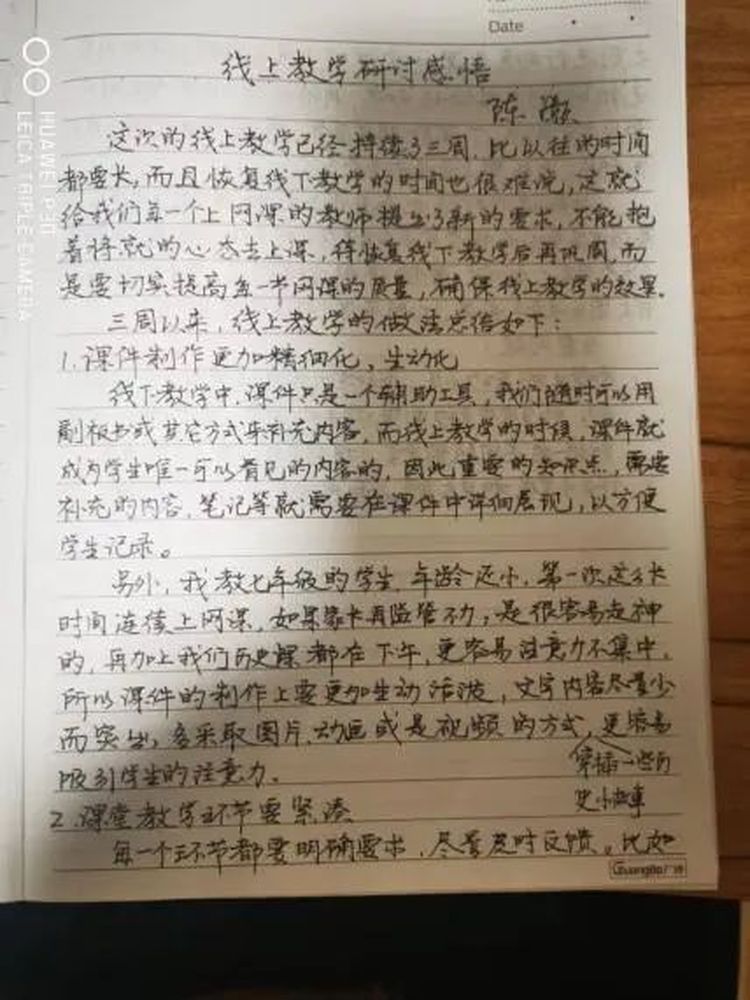 Date
线上教学研讨感悟
陈灏
这次的线上教学已经持续了三周,比以往的时间
都要长,而且恢复线下教学的时间也很难说,这就
给我们每一个上网课的教师提出了新的要求,不能抱
着将就的心态去上课,待恢复线下教学后再巩固,而
是要切实提高每一节网课的质量,确保线上教学的效果.
三周以来,线上教学的做法总结如下:
1.课件制作更加精细化、生动化
线下教学中,课件只是一个辅助工具,我们随时可以用
副板书或其它方式来补充内容,而线上教学的时候,课件就
成为学生唯一可以看见的内容的,因此重要的知识点,需要
补充的内容,笔记等就需要在课件中详细展现,以方便
学生记录。
另外,我教七年级的学生,年龄还小,第一次这么长
时间连续上网课,如果家长再监管不力,是很容易走神
的,再加上我们历史课都在下午,更容易注意力不集中,
所以课件的制作上要更加生动活泼,文字内容尽量少
而突出,多采取图片、动画或是视频的方式,更容易
穿插一些历
吸引学生的注意力.
史小故事
2.课堂教学环节要紧凑
每一个环节都要明确要求,尽量及时反馈。比如
Guangbo
HUAWEI P30
LEICA TRIPLE CAMERA